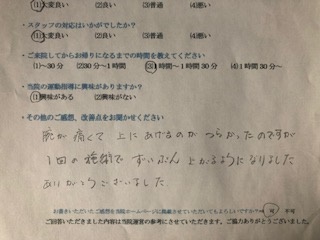 (1)大変良い (2)良い (3)普通 (4)悪い
・スタッフの対応はいかがでしたか?
(1)大変良い (2)良い (3)普通 (4)悪い
・ご来院してからお帰りになるまでの時間を教えてください
(1)～30分 (2)30分～1時間 (3)1時間～1時間30分 (4)1時間30分～
・当院の運動指導に興味がありますか?
(1)興味がある (2)興味がない
・その他のご感想、改善点をお聞かせください
腕が痛くて上にあげるのがつらかったのですが
1回の施術でずいぶん上がるようになりました
ありがとうございました
お書きいただいたご感想を当院ホームページに掲載させていただいてもよろしいですか? 可 不可
ご回答いただきました内容は当院運営の参考にさせていただきます。ご協力ありがとうございました。